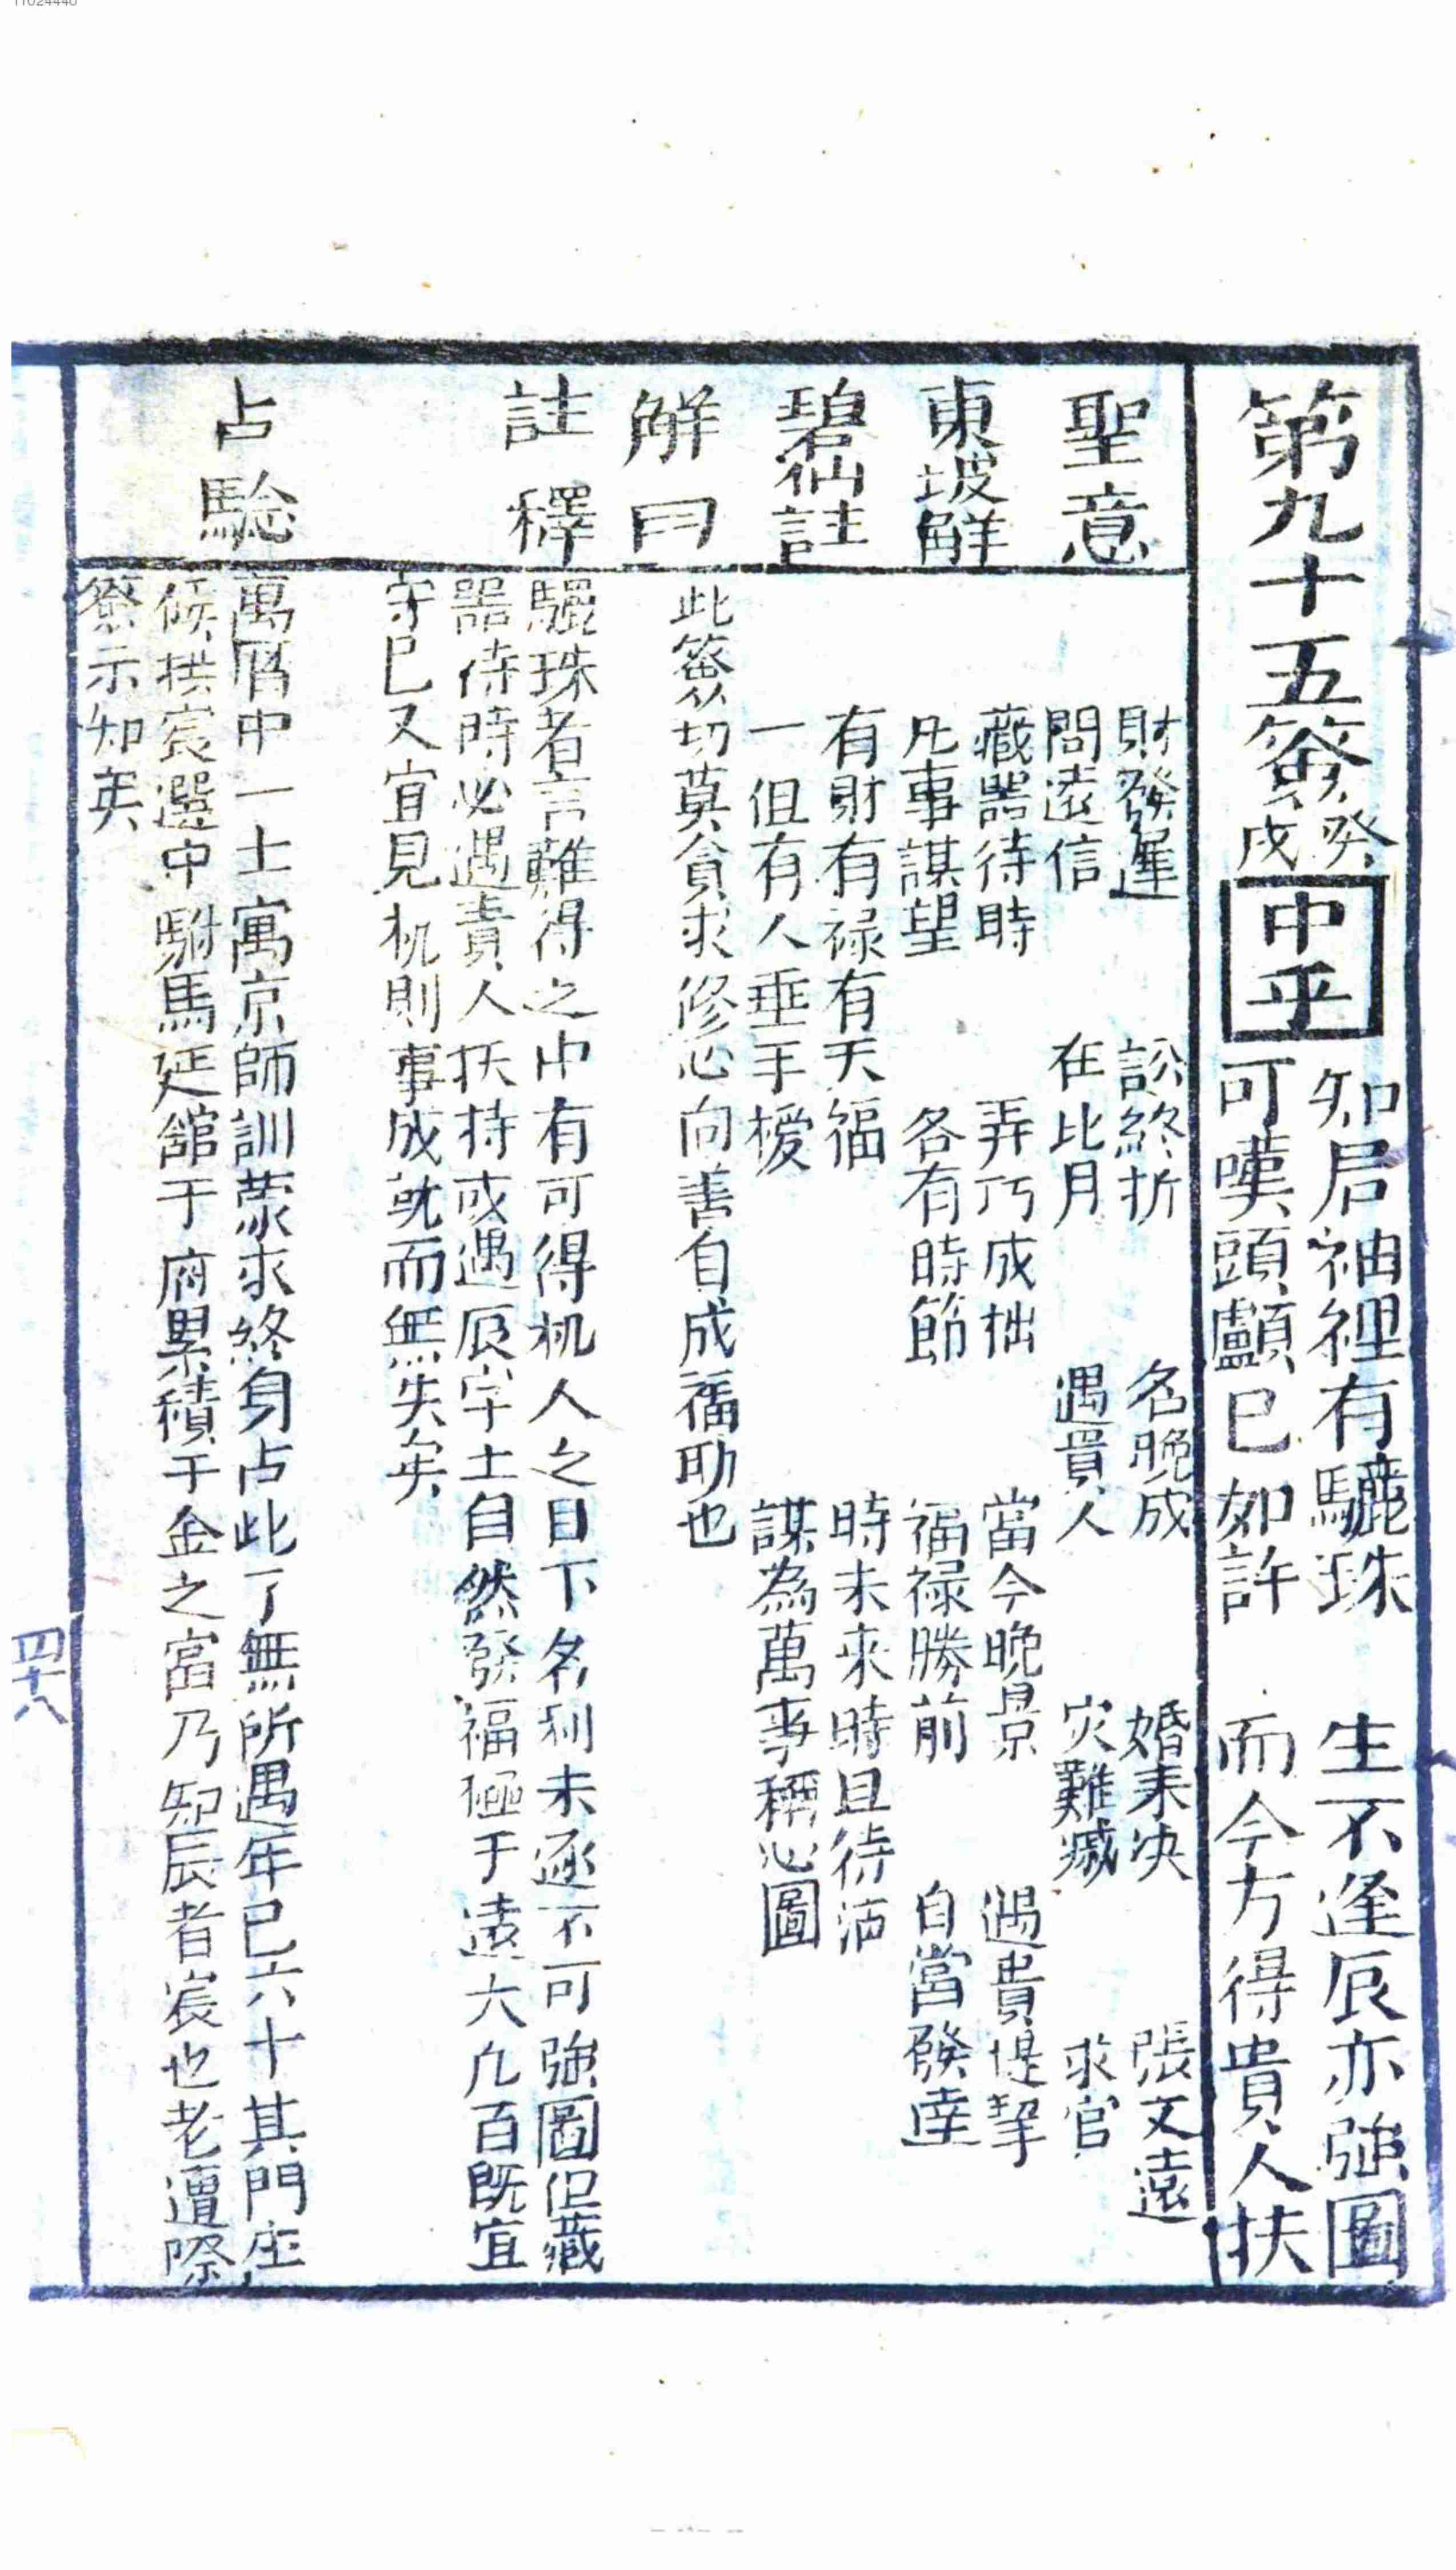 11024440
第九十五簽
癸戌
中平
知君袖裡有驪珠 生不逢辰亦強圖
可嘆頭顱已如許 而今方得貴人扶
聖意
財發遲 訟終折 名晚成 婚未决 張文遠
問遠信 在比月 遇貴人 灾難滅 求官
東坡解
藏器待時 弄巧成拙 當今晚景 遇貴提挈
凡事謀望 各有時節 福祿勝前 自當發達
碧仙註
有財有祿有天福 時未來時且待沽
一但有人垂手 謀為萬事稱心圖
解曰
此簽切莫貪求修心向善自成福助也
註釋
驪珠者言難得之中有可得机人之目下名利未逐不可強圖但藏
器待時必遇貴人扶持或遇辰字土自然發福極于遠大凢百既宜
守已又宜見机則事成就而無失矣
占驗
萬曆中一士寓京師訓蒙求終身占此了無所遇年已六十其門生
侯拱宸選中駙馬延舘于府累積千金之富乃知辰者宸也老遭際
簽示知矣
四十八